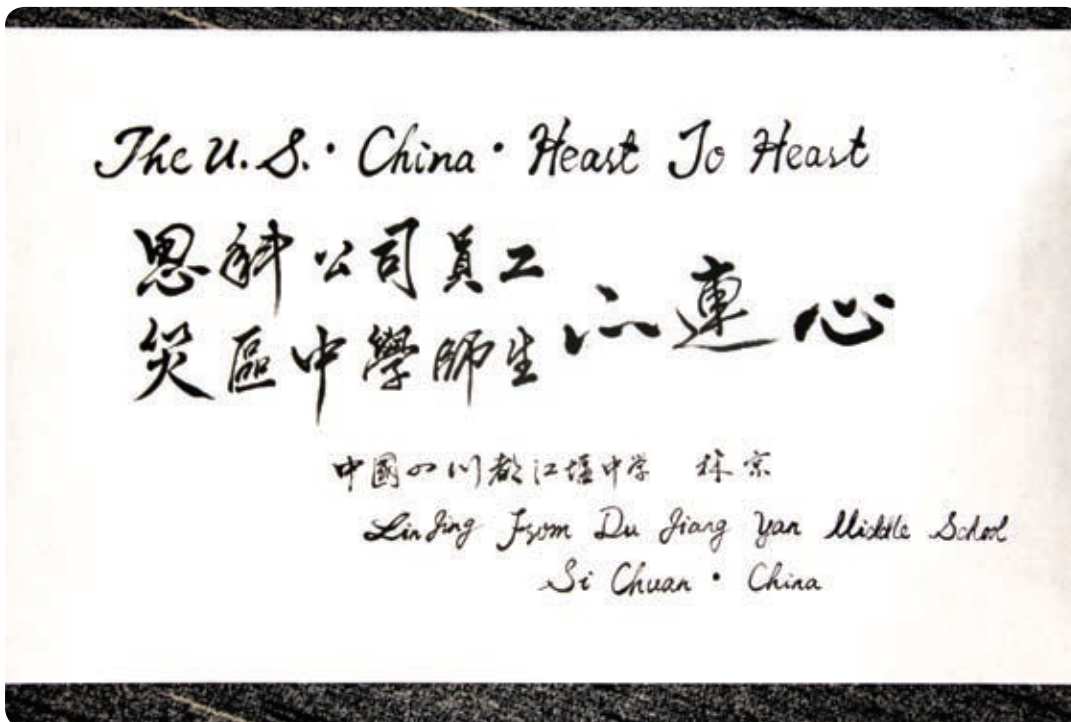 The U.S. · China · Heart To Heart
思科公司員工
災區中學師生
心連心
中國四川都江堰中学 林京
Lin Jing From Du Jiang Yan Middle School
Si Chuan · China